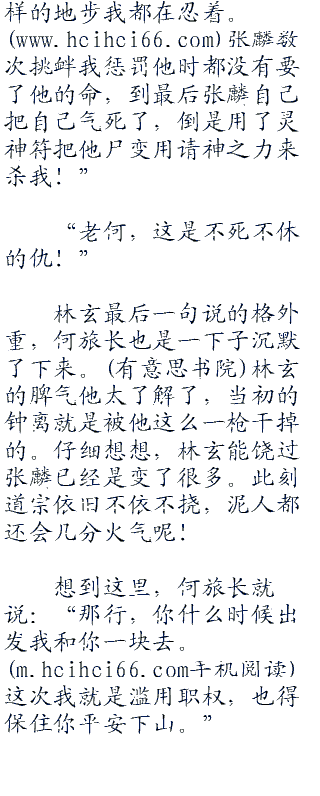 样的地步我都在忍着。
(www.hcihci66.com)张麟数
次挑衅我惩罚他时都没有要
了他的命，到最后张麟自己
把自己气死了，倒是用了灵
神符把他尸变用请神之力来
杀我！”
“老何，这是不死不休
的仇！”
林玄最后一句说的格外
重，何旅长也是一下子沉默
了下来。(有意思书院)林玄
的脾气他太了解了，当初的
钟离就是被他这么一枪干掉
的。仔细想想，林玄能饶过
张麟已经是变了很多。此刻
道宗依旧不依不挠，泥人都
还会几分火气呢！
想到这里，何旅长就
说：“那行，你什么时候出
发我和你一块去。
(m.hcihci66.com手机阅读)
这次我就是滥用职权，也得
保住你平安下山。”